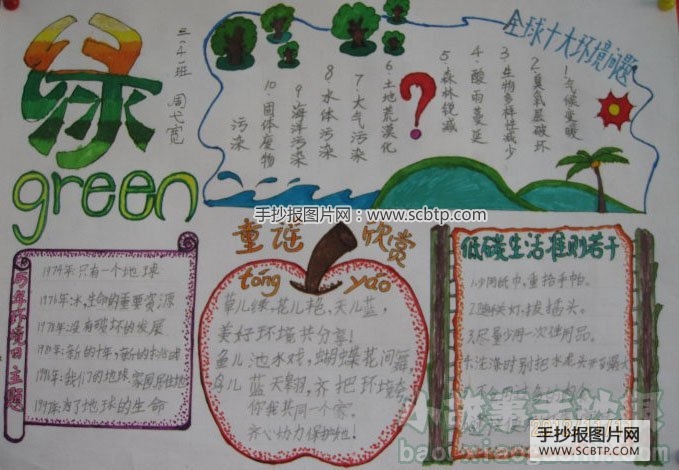 绿
green
三.4班 周弋宽
全球十大环境问题
1.气候变暖
2.臭氧层破坏
3.生物多样性减少
4.酸雨蔓延
5.森林锐减
6.土地荒漠化
7.大气污染
8.水体污染
9.海洋污染
10.固体废物
污染
?
手抄报图片网:www.scbtp.com
历年环境日主题
1974年:只有一个地球
1976年:水,生命的重要资源
1978年:没有破坏的发展
:新的十年,新的挑战
:我们的地球
:为了地球的生命
童谣 欣赏
tóng yáo
草儿绿,花儿艳,天儿蓝,
美好环境共分享!
鱼儿池水戏,蝴蝶花间舞,
鸟儿蓝天翱,齐把环境
你我共同一个家。
齐心协力保护她!
低碳生活准则若干
1.少用纸巾,重拾手帕。
2.随手关灯,拔插头。
3.尽量少用一次性用品。
4.洗涤时别把水龙头开
手抄报图片网
WWW.SCBTP.COM